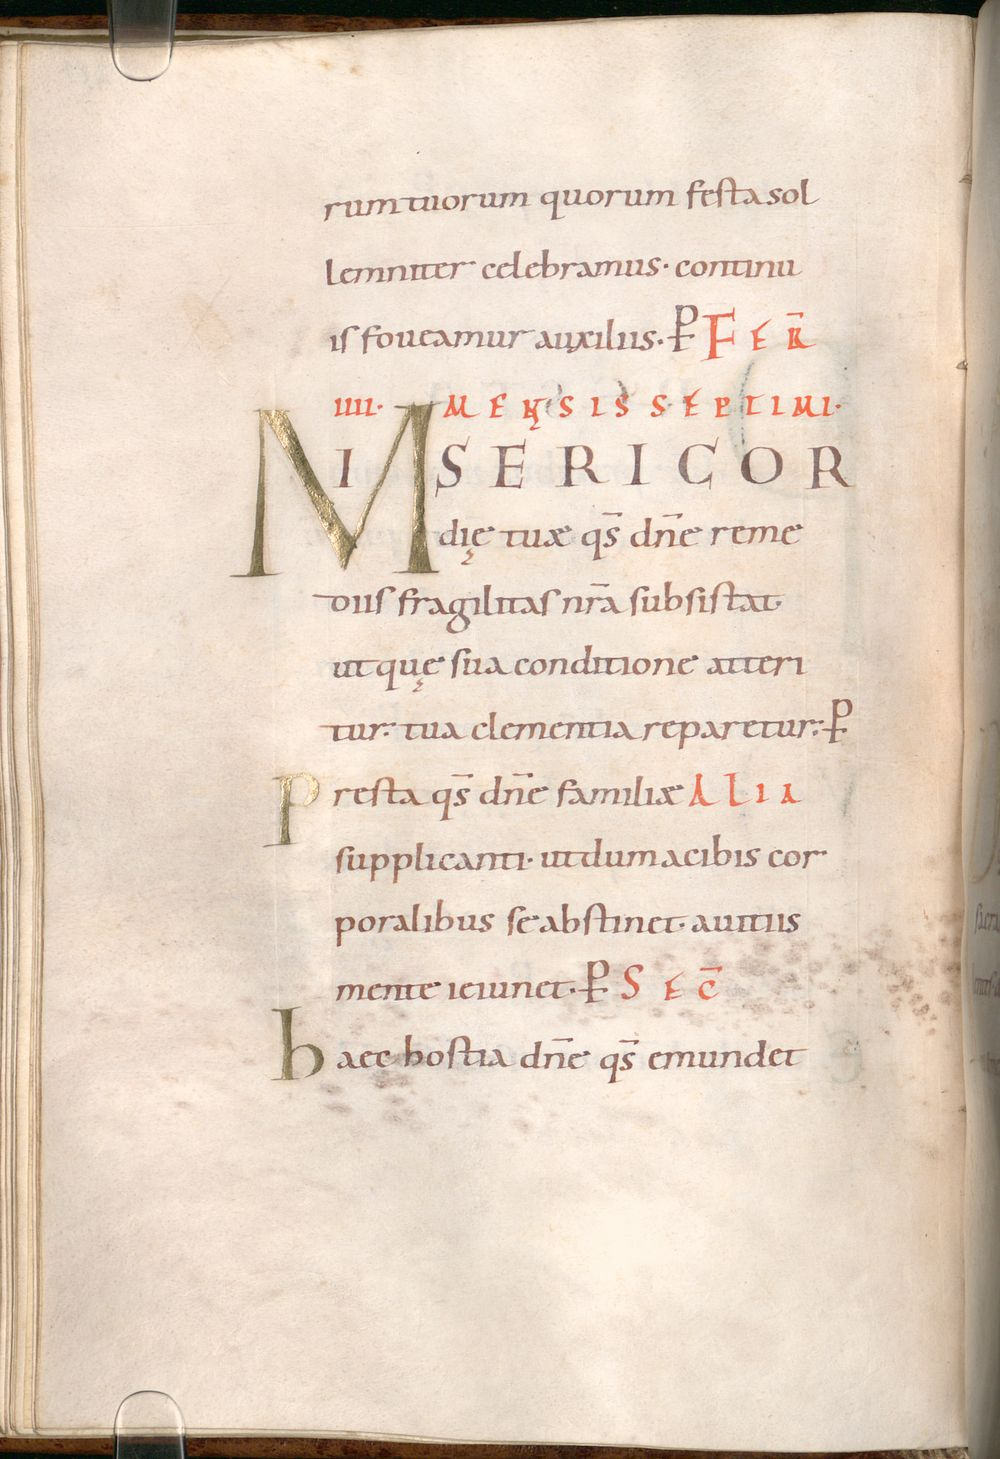 rum tuorum quorum festa sol
lemniter celebramus· continu
is foveamur auxiliis· P̵ FER̄
IIII· MENSIS SEPTIMI·
MISERICOR
dię tuæ qs̄ dn̄e reme
diis fragilitas nr̄a subsistat·
ut quę sua conditione atteri
tur· tua clementia reparetur· P̵
Presta qs̄ dn̄e familiæ ALIA
supplicanti· ut dum a cibis cor
poralibus se abstinet· a uitiis
mente ieiunet· P̵ SEC̄
haec hostia dn̄e qs̄ emundet